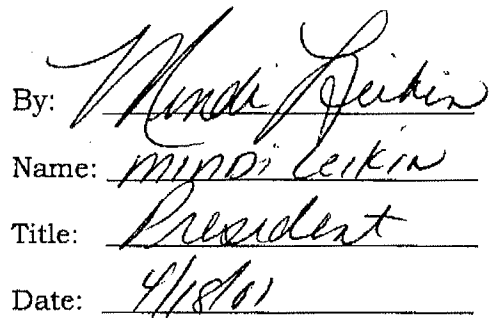 By: Mindi Leikin
Name: Mindi Leikin
Title: President
Date: 4/18/01